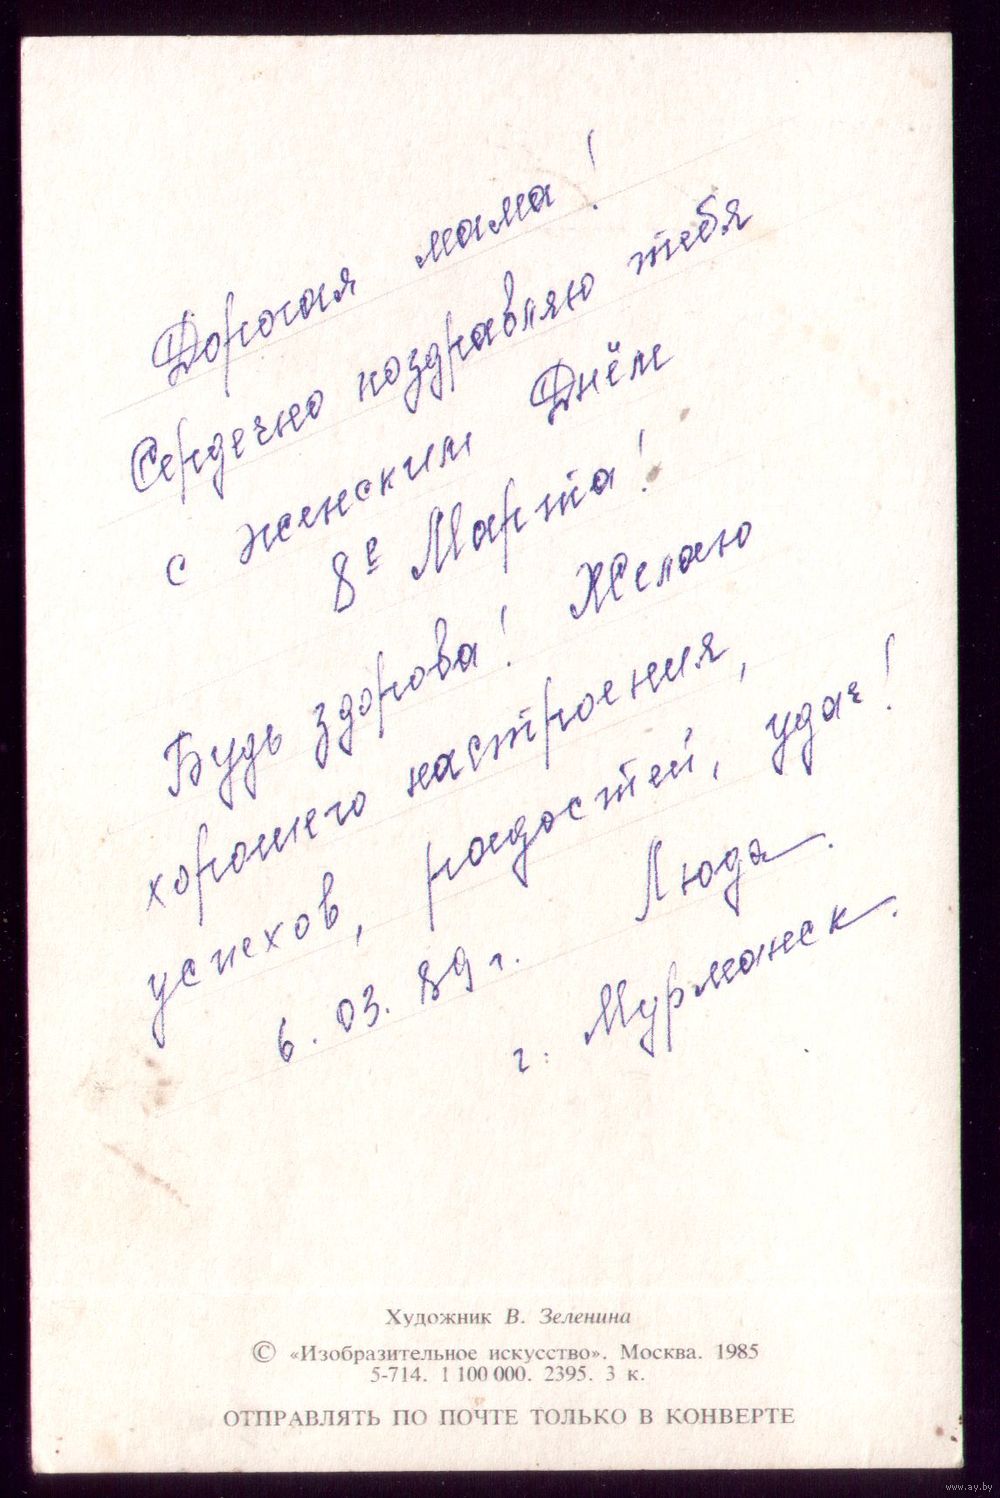 Дорогая мама!
Сердечно поздравляю тебя
с женским Днём
8е Марта!
Будь здорова! Желаю
хорошего настроения,
успехов, радостей, удач!
6.03.89 г. Люда.
г. Мурманск.
Художник В. Зеленина
© «Изобразительное искусство». Москва. 1985
5-714. 1 100 000. 2395. 3 к.
ОТПРАВЛЯТЬ ПО ПОЧТЕ ТОЛЬКО В КОНВЕРТЕ
www.ay.by